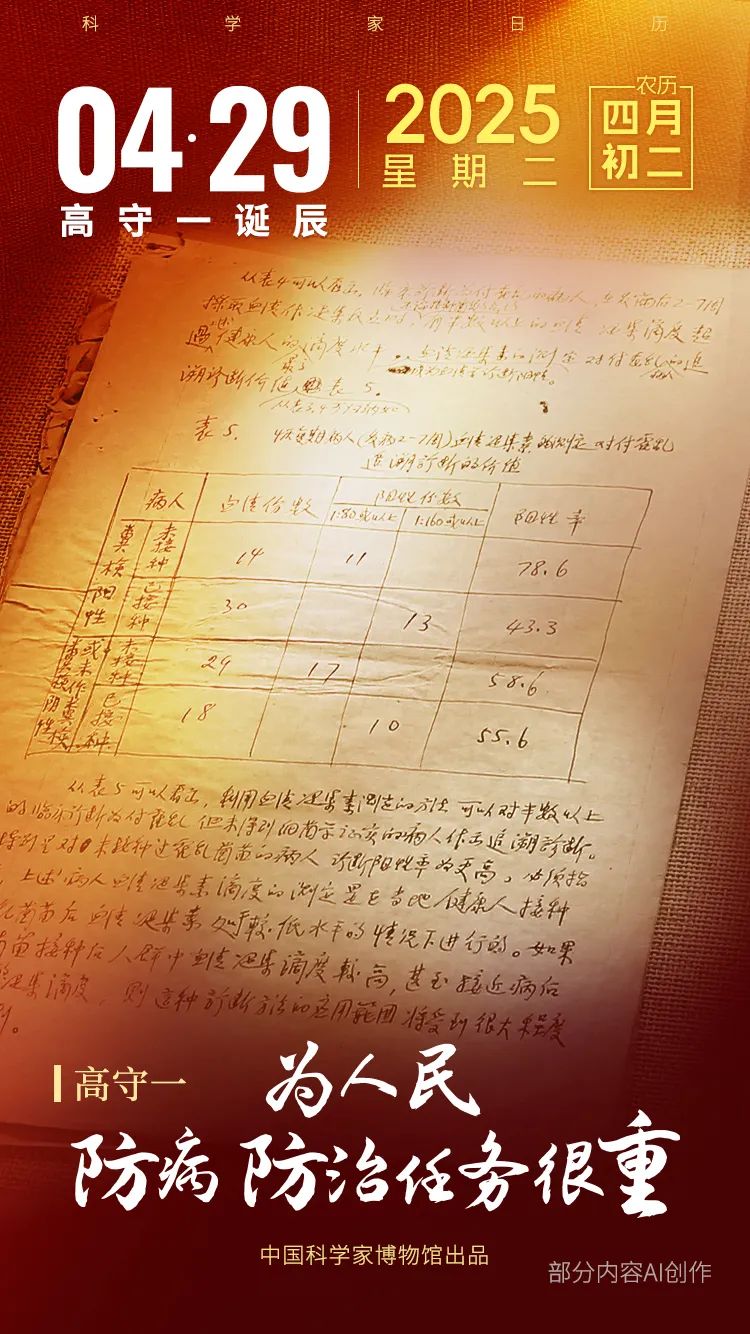 科学家日历
04·29
高守一诞辰
2025
星期二
农历
四月
初二
从表4可以看出,
表5.
追溯诊断的价值
病人 血清份数 阳性份数 阳性率
1:80或以上 1:160或以上
粪检阳性 未接种 14 11 78.6
已接种 30 13 43.3
未接种 29 17 58.6
已接种 18 10 55.6
从表5可以看出,利用血清凝集素测定的方法可以对半数以上
的临床诊断为付霍乱但未得到细菌学证实的病人作出追溯诊断。
对未接种过霍乱菌苗的病人诊断阳性率为更高。必须指
上述病人血清凝集素滴度的测定是在当地健康人接种
菌苗后血清凝集素处于较低水平的情况下进行的。如果
接种后人群中血清凝集滴度较高,甚至接近病后
凝集滴度,则这种诊断方法的应用范围将受到很大程度
高守一
为人民
防病防治任务很重
中国科学家博物馆出品
部分内容AI创作